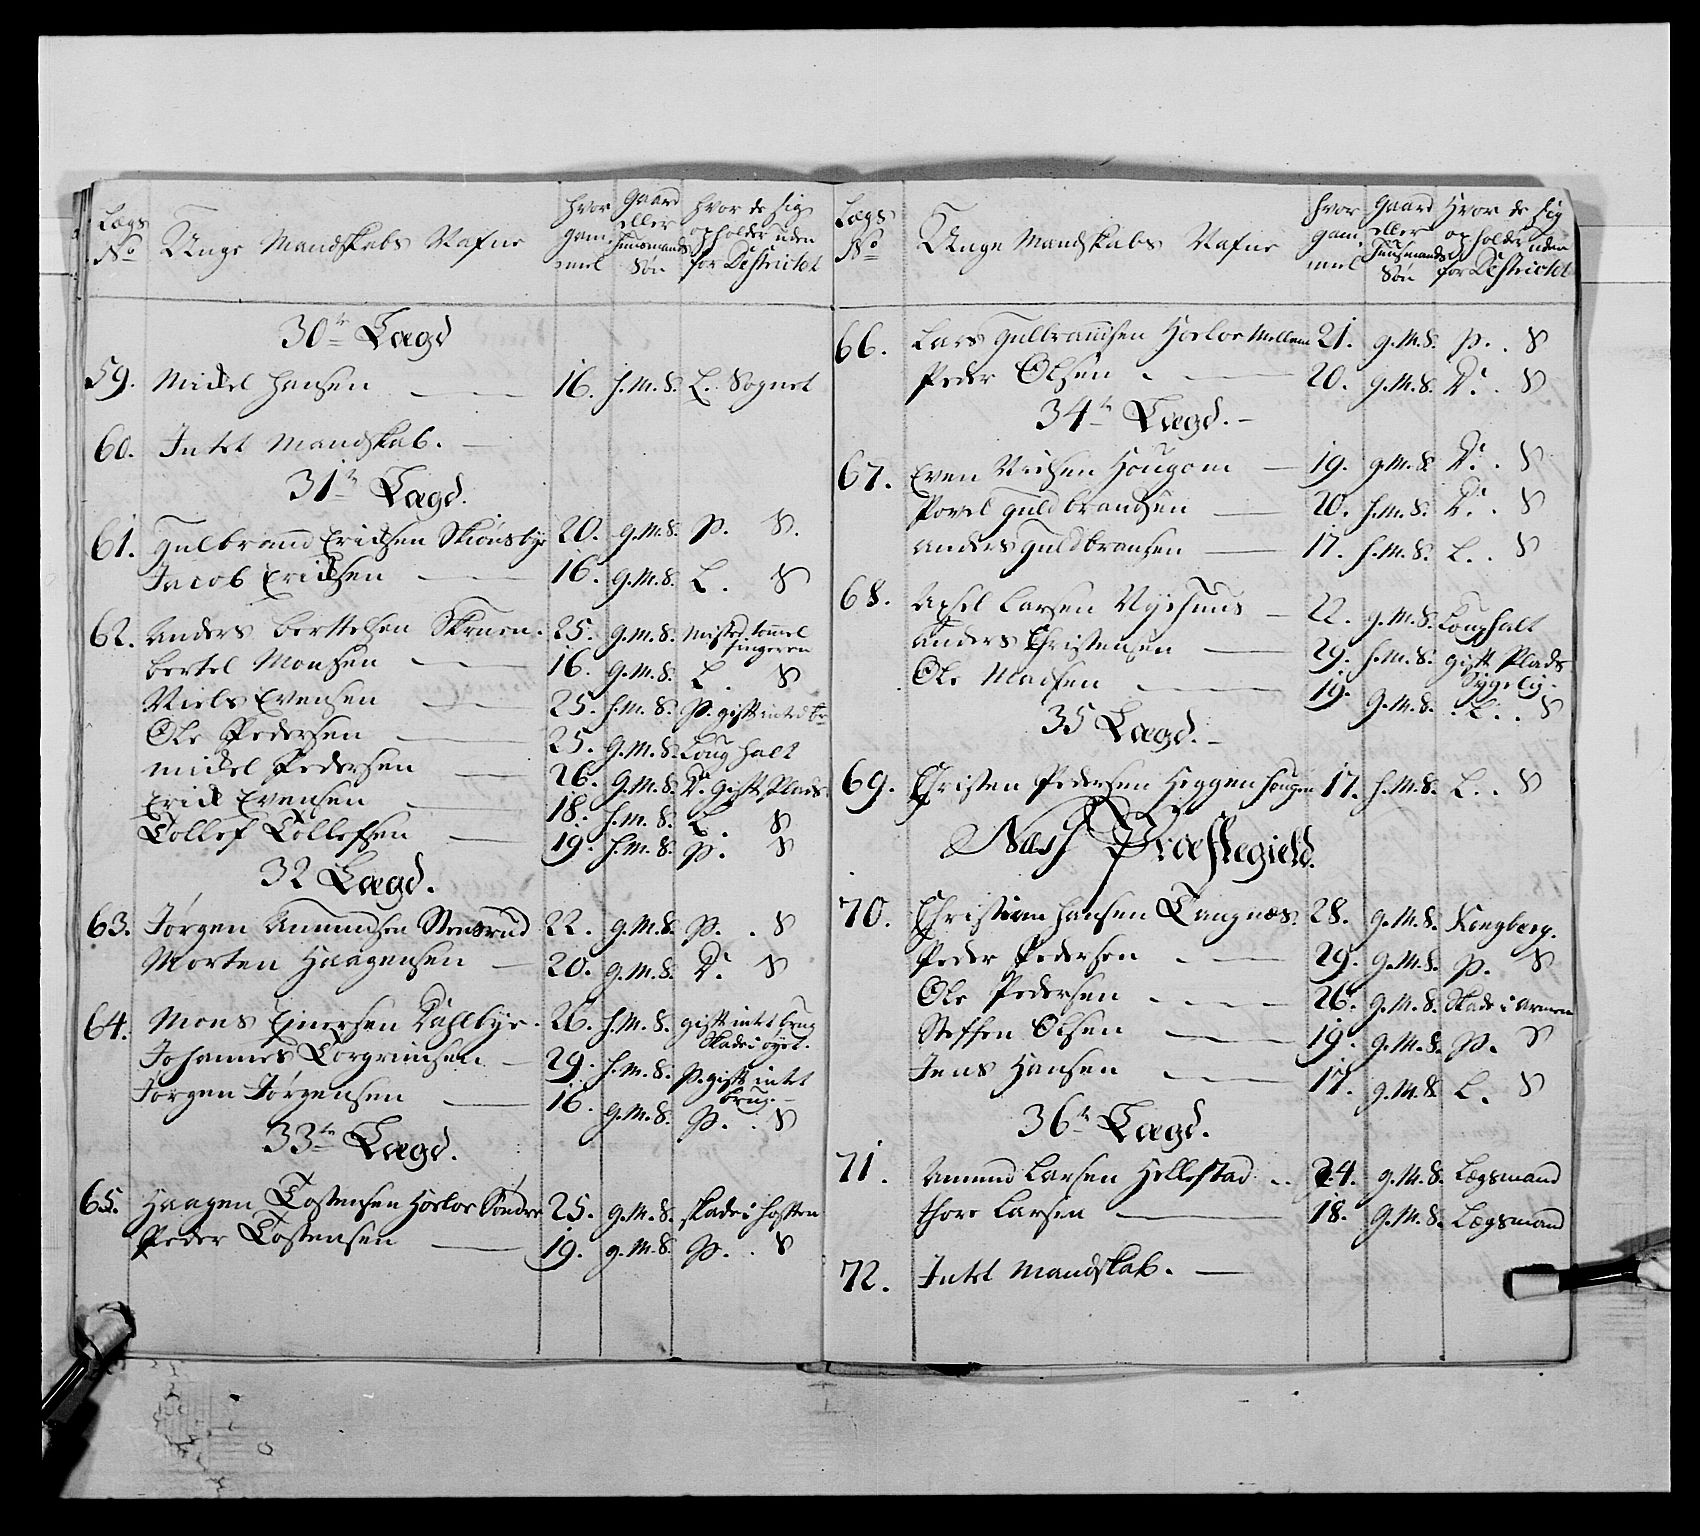 Lægs No | Unge Mandskabs Nafne | hvor gammel | Gaard eller Huusmands Søn | hvor de sig opholder uden for Districtet
30te Lægd
59. Mickel Hansen — 16. h.M.S. L. Sognet
60. Intet Mandskab. —
31te Lægd.
61. Gulbrand Ericksen Skiønsbye 20. g.M.S. P. S.
Jacob Ericksen — 16. g.M.S. L. S
62. Anders Berttelsen Skruen. 25. g.M.S. misted tommel fingeren
Bertel Monsen — 16. g.M.S. L. S
Niels Evensen — 25. h.M.S. P. gift inted br
Ole Pedersen — 25. g.M.S. Loug halt
Mickel Pedersen — 26. g.M.S. Do. Gift Plads
Erick Evensen — 18. h.M.S. L. S
Tollef Tollefsen — 19. h.M.S. P. S
32 Lægd.
63. Jørgen Amundsen Stensrud 22. g.M.S. P. . S
Morten Haagensen — 20. g.M.S. Do. S
64. Mons Ejnersen Dahlbye. 26. h.M.S. gift intet brug
Skade i øyet.
Johannes Torgrimsen. — 29. h.M.S. P. gift intet
brug. —
Jørgen Jørgensen — 16. g.M.S. P. . S
33te Lægd.
65. Haagen Tostensen Horloe Søndre 25. g.M.S. skade i hoften
Peder Tostensen — 19. g.M.S. P. . S
Lægs No | Unge Mandskabs Nafne | hvor gammel | Gaard eller Huusmands Søn | Hvor de sig opholder uden for Districtet
66. Lars Gulbrandsen Horloe Mellem 21. g.M.S. P. . S
Peder Olsen — 20. g.M.S. Do. . S
34te Lægd. —
67. Even Nielsen Hougom — 19. g.M.S. Do. . S
Povel Guldbrandsen — 20. h.M.S. Do. . S
Anders Guldbransen — 17. h.M.S. L. . S
68. Axsel Larsen Nyehuus — 22. g.M.S. Loughalt
Anders Christensen — 29. h.M.S. gift Plads
Sygelig.
Ole Madsen — 19. g.M.S. L. . S
35 Lægd. —
69. Christen Pedersen Heggenhougen 17. h.M.S. L. . S
Næss Præstegield.
70. Christian Hansen Tangnæs. 28. g.M.S. Kongberg.
Peder Pedersen — 29. g.M.S. P. S
Ole Pedersen — 26. g.M.S. Skade i Armen
Steffen Olsen — 19. g.M.S. P. S
Jens Hansen — 17. g.M.S. L. S
36te Lægd.
71. Amund Larsen Hellestad .. 24. g.M.S. Lægsmand
Thore Larsen — 18. g.M.S. Lægsmand
72. Intet Mandskab. —